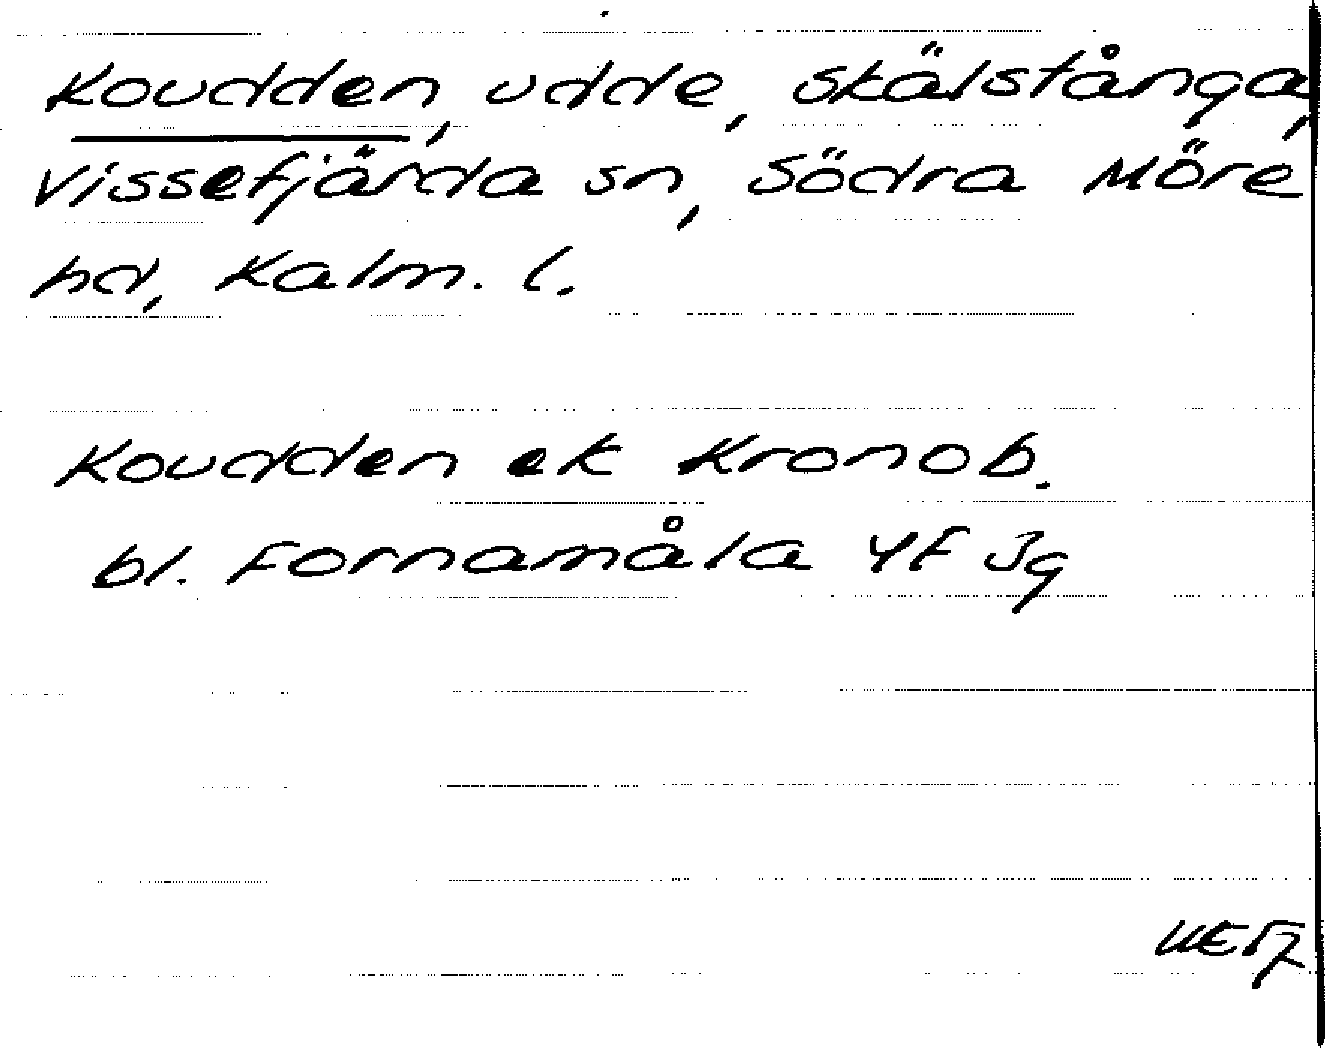 Koudden, udde, Skälstånga,
Vissefjärda sn, Södra Möre
hd, Kalm. l.
Koudden ek Kronob.
bl. Fornamåla 4f Jg